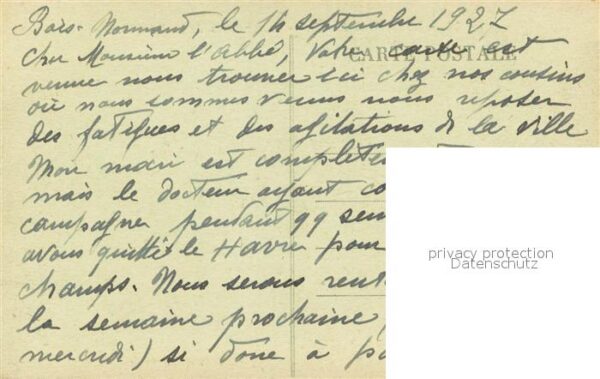 Bois-Normand, le 14 septembre 1927
Cher Monsieur l'Abbé, Votre carte est
CARTE POSTALE
venue nous trouver ici chez nos cousins
où nous sommes venus nous reposer
des fatigues et des agitations de la ville
Mon mari est complèt
mais le docteur ayant co
campagne pendant qq sem
avons quitté le Havre pour
champs. Nous serons rent
la semaine prochaine,
mercredi) si donc à pa
privacy protection
Datenschutz